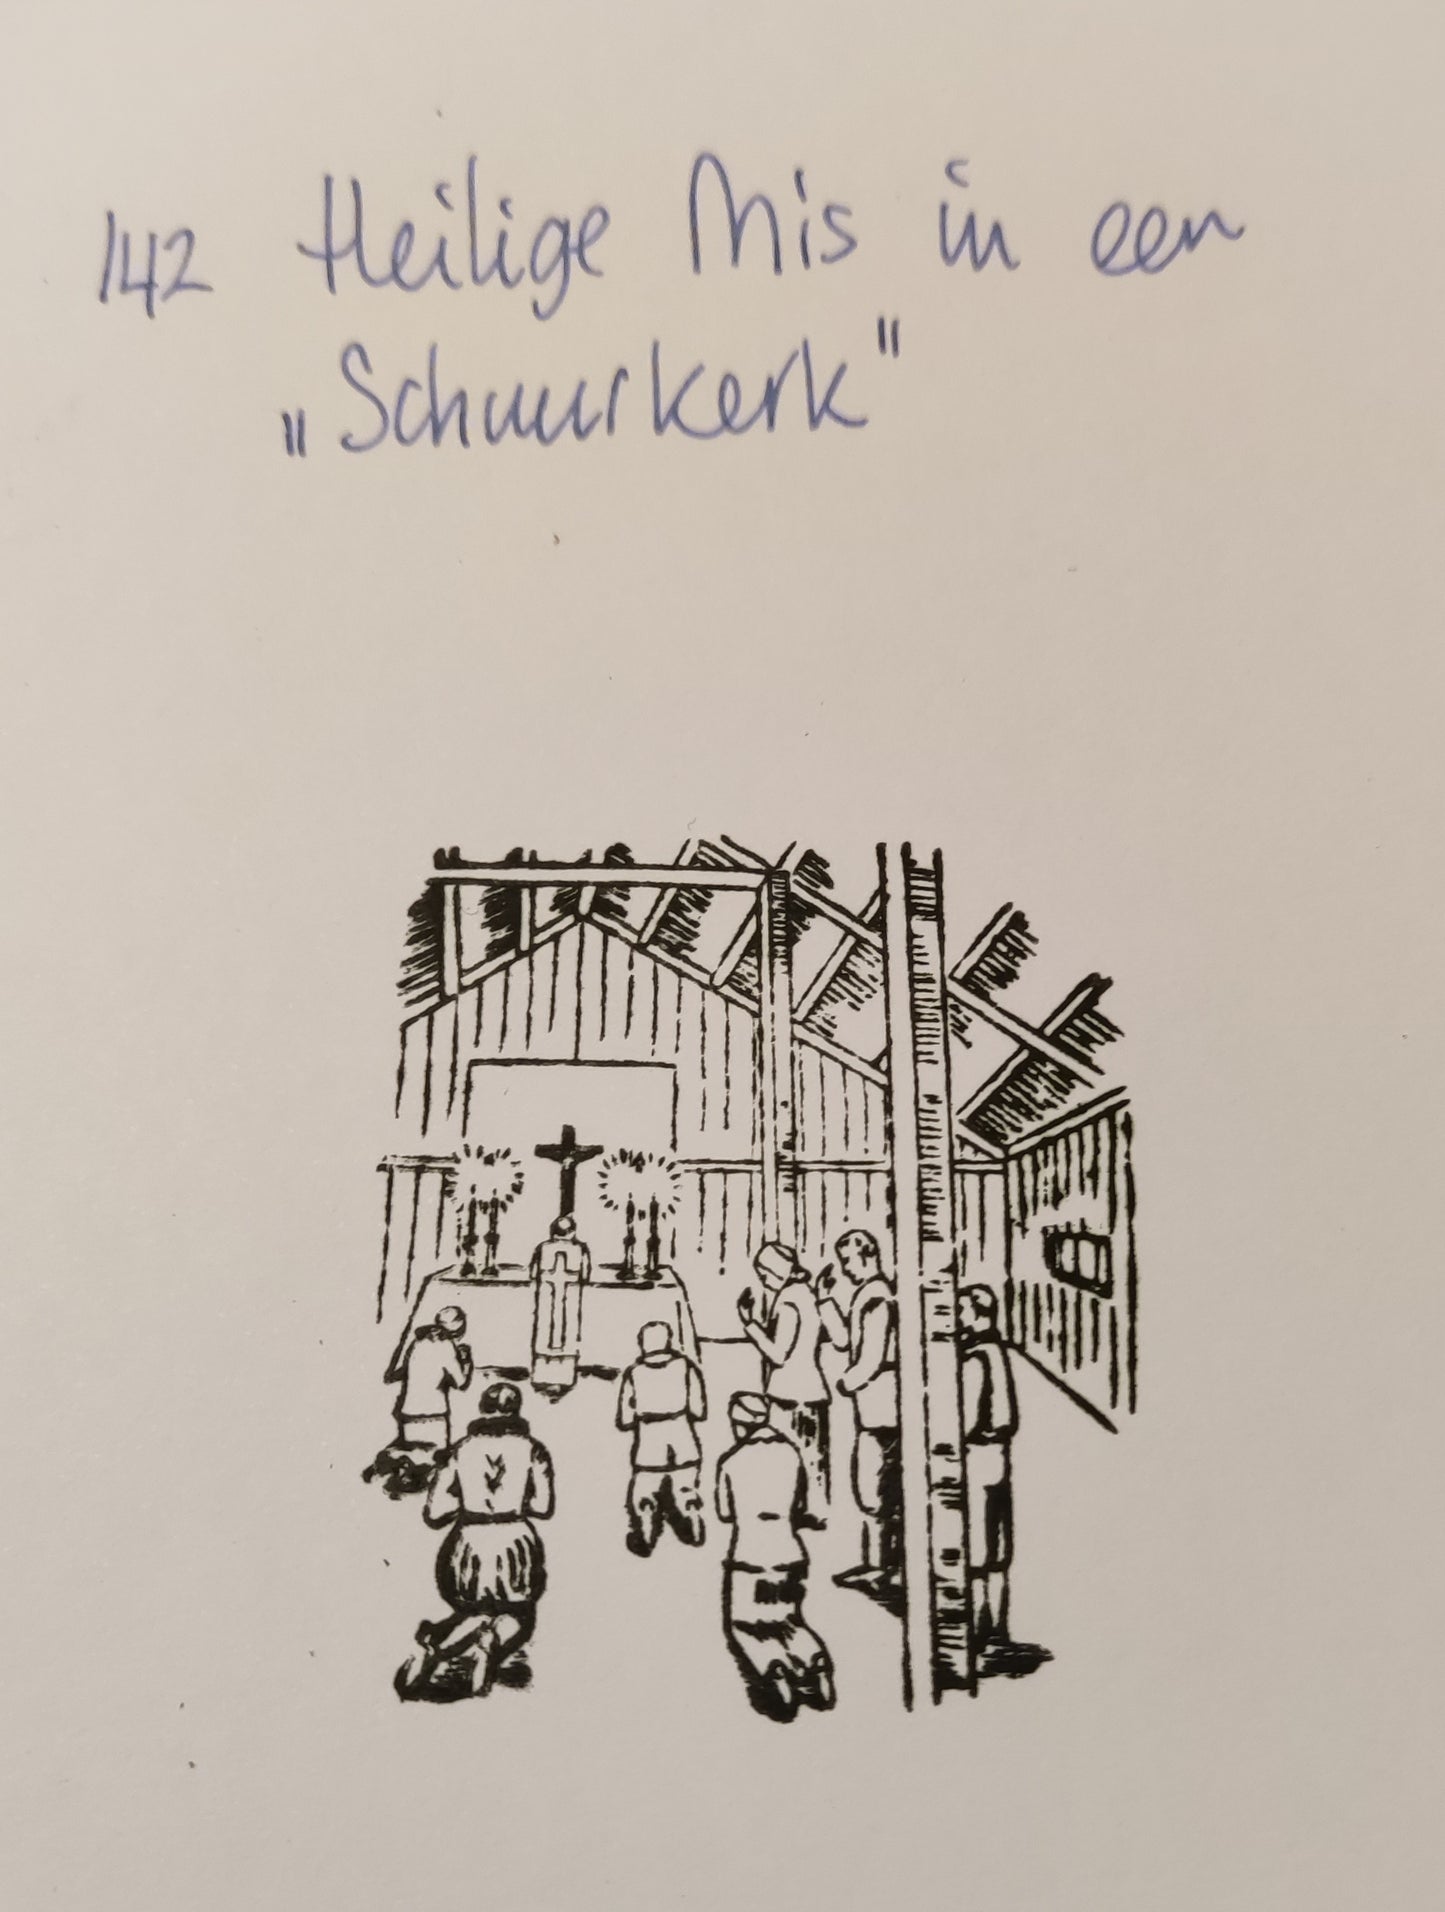 142 Heilige Mis in een
„Schuurkerk"